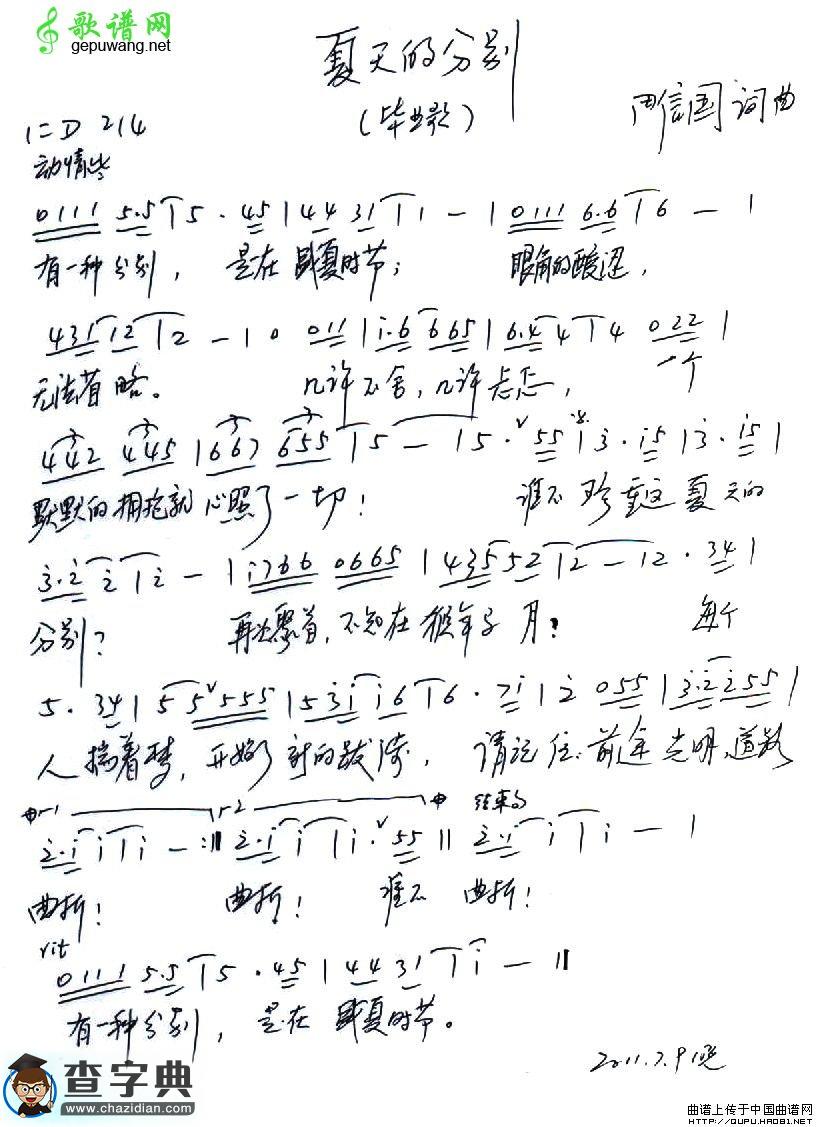 歌谱网
gepuwang.net
夏天的分别
(毕业歌)
信国 词曲
1=D 2/4
动情地
0111 5·5 | 5 · 45 | 44 31 | 1 - | 0111 6·6 | 6 - |
有一种分别， 是在盛夏时节； 眼角的酸涩，
431 12 | 2 - | 0 011 | i·6 665 | 6·4 4 | 4 022 |
无法省略。 几许不舍，几许忐忑， 一个
442 445 | 667 655 | 5 - | 5 · ˅ 55 | 3 · i5 | 3 · i5 |
默默的拥抱就心照了一切！ 谁不珍重这夏天的
3·2 2 | 2 - | i766 0665 | 435 52 | 2 - | 2 · 34 |
分别？ 再次聚首，不知在猴年马月？ 每个
5 · 34 | 5 5 ˅ 555 | 53i i6 | 6 · 7i | 2 055 | 3·2 255 |
人揣着梦，开始了新的跋涉， 请记住：前途光明、道路
1 2 结束句
2·i i | i - :‖ 2·i i | i · ˅ 55 ‖ 2·i i | i - |
曲折！ 曲折！ 谁不 曲折！
rit
0111 5·5 | 5 · 45 | 44 31 | i - ‖
有一种分别， 是在盛夏时节。
2011.7.9晚
查字典
www.chazidian.com
曲谱上传于中国曲谱网
HTTP://QUPU.HAO81.NET